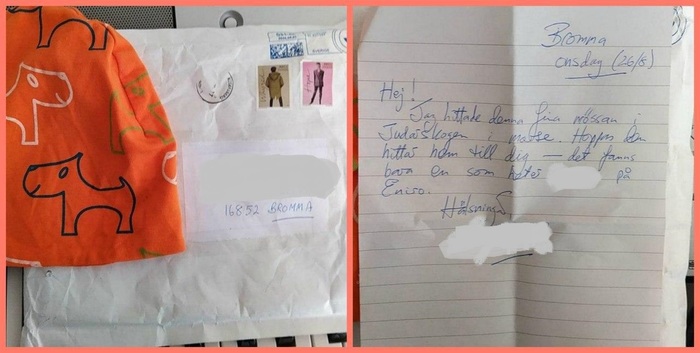 168 52 BROMMA
Bromma
onsdag (26/8)
Hej!
Jag hittade denna fina mössan i
Judarskogen i Hoppas den
hittar hem till dig — det fanns
bara en som heter på
Eniro.
Hälsning